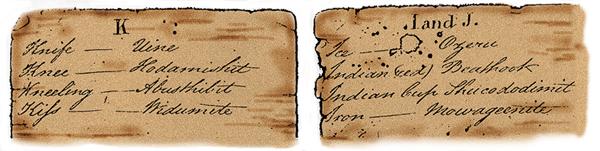 K
Knife — Uine
Knee — Hodamishit
Kneeling — Abusthibit
Kiss — Widumite
I and J.
Ice — Ozeru
Indian (red) Beathook
Indian Cup Shucododimit
Iron — Mowageenite